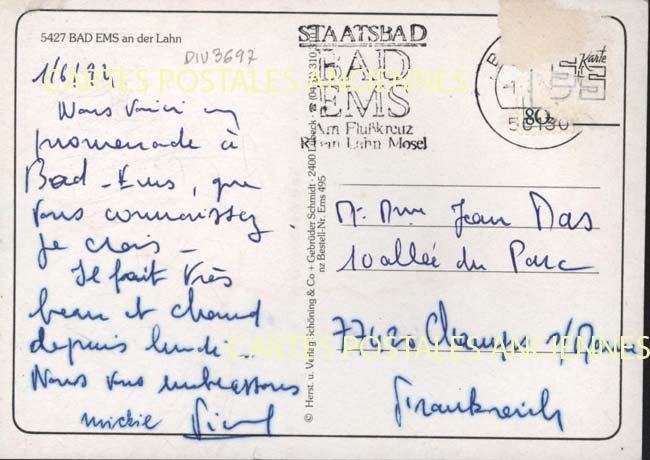 5427 BAD EMS an der Lahn
DIV3697
Nous voici en
promenade à
Bad-Ems, que
vous connaissez
je crois -
Il fait très
beau et chaud
depuis lundi.
Nous vous embrassons
Mickie
© Herst. u. Verlag Schöning & Co + Gebrüder Schmidt · 2400 Lübeck
Bestell-Nr. Ems 495
STAATSBAD
BAD
EMS
Am Flußkreuz
Rhein Lahn Mosel
Karte
80
56130
M. Mme Jean Mas
10 allée du Parc
Frankreich
CARTES POSTALES ANCIENNES
CARTES POSTALES ANCIENNES